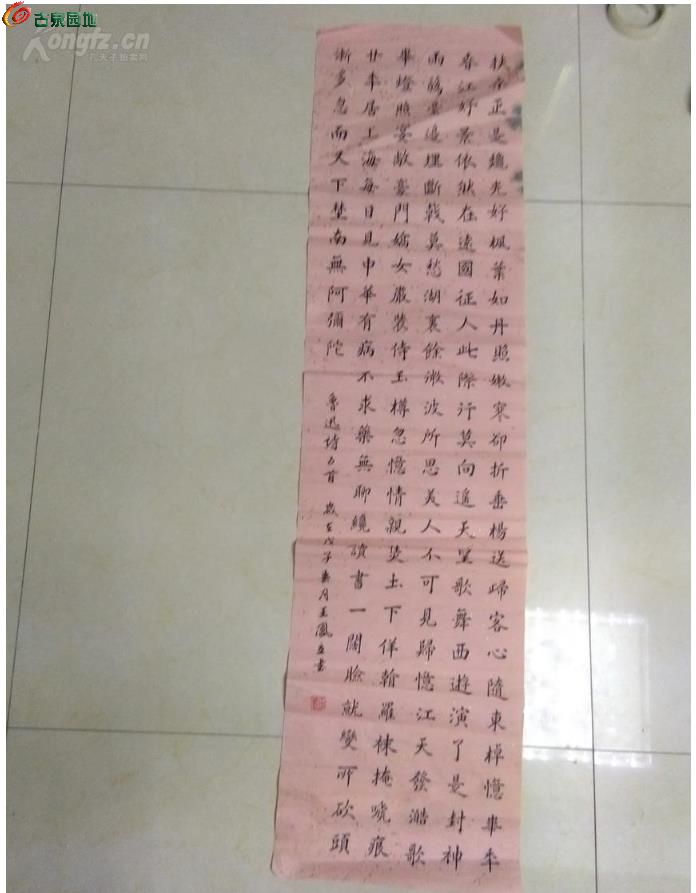 古泉园地
Kongfz.cn
孔夫子拍卖网
扶桑正是龝光好楓葉如丹照嫩寒卻折垂楊送歸客心隨東棹憶華年
春江好景依然在遠國征人此際行莫向遥天望歌舞西遊演了是封神
雨花臺邊埋斷戟莫愁湖裏餘微波所思美人不可見歸憶江天發浩歌
華燈照宴敞豪門嬌女嚴裝侍玉樽忽憶情親焦土下佯看羅襪掩啼痕
廿年居上海每日見中華有病不求藥無聊纔讀書一闊臉就變所砍頭
漸多忽而又下埜南無阿彌陀
魯迅詩五首 歲在戊子 月王鳳 書